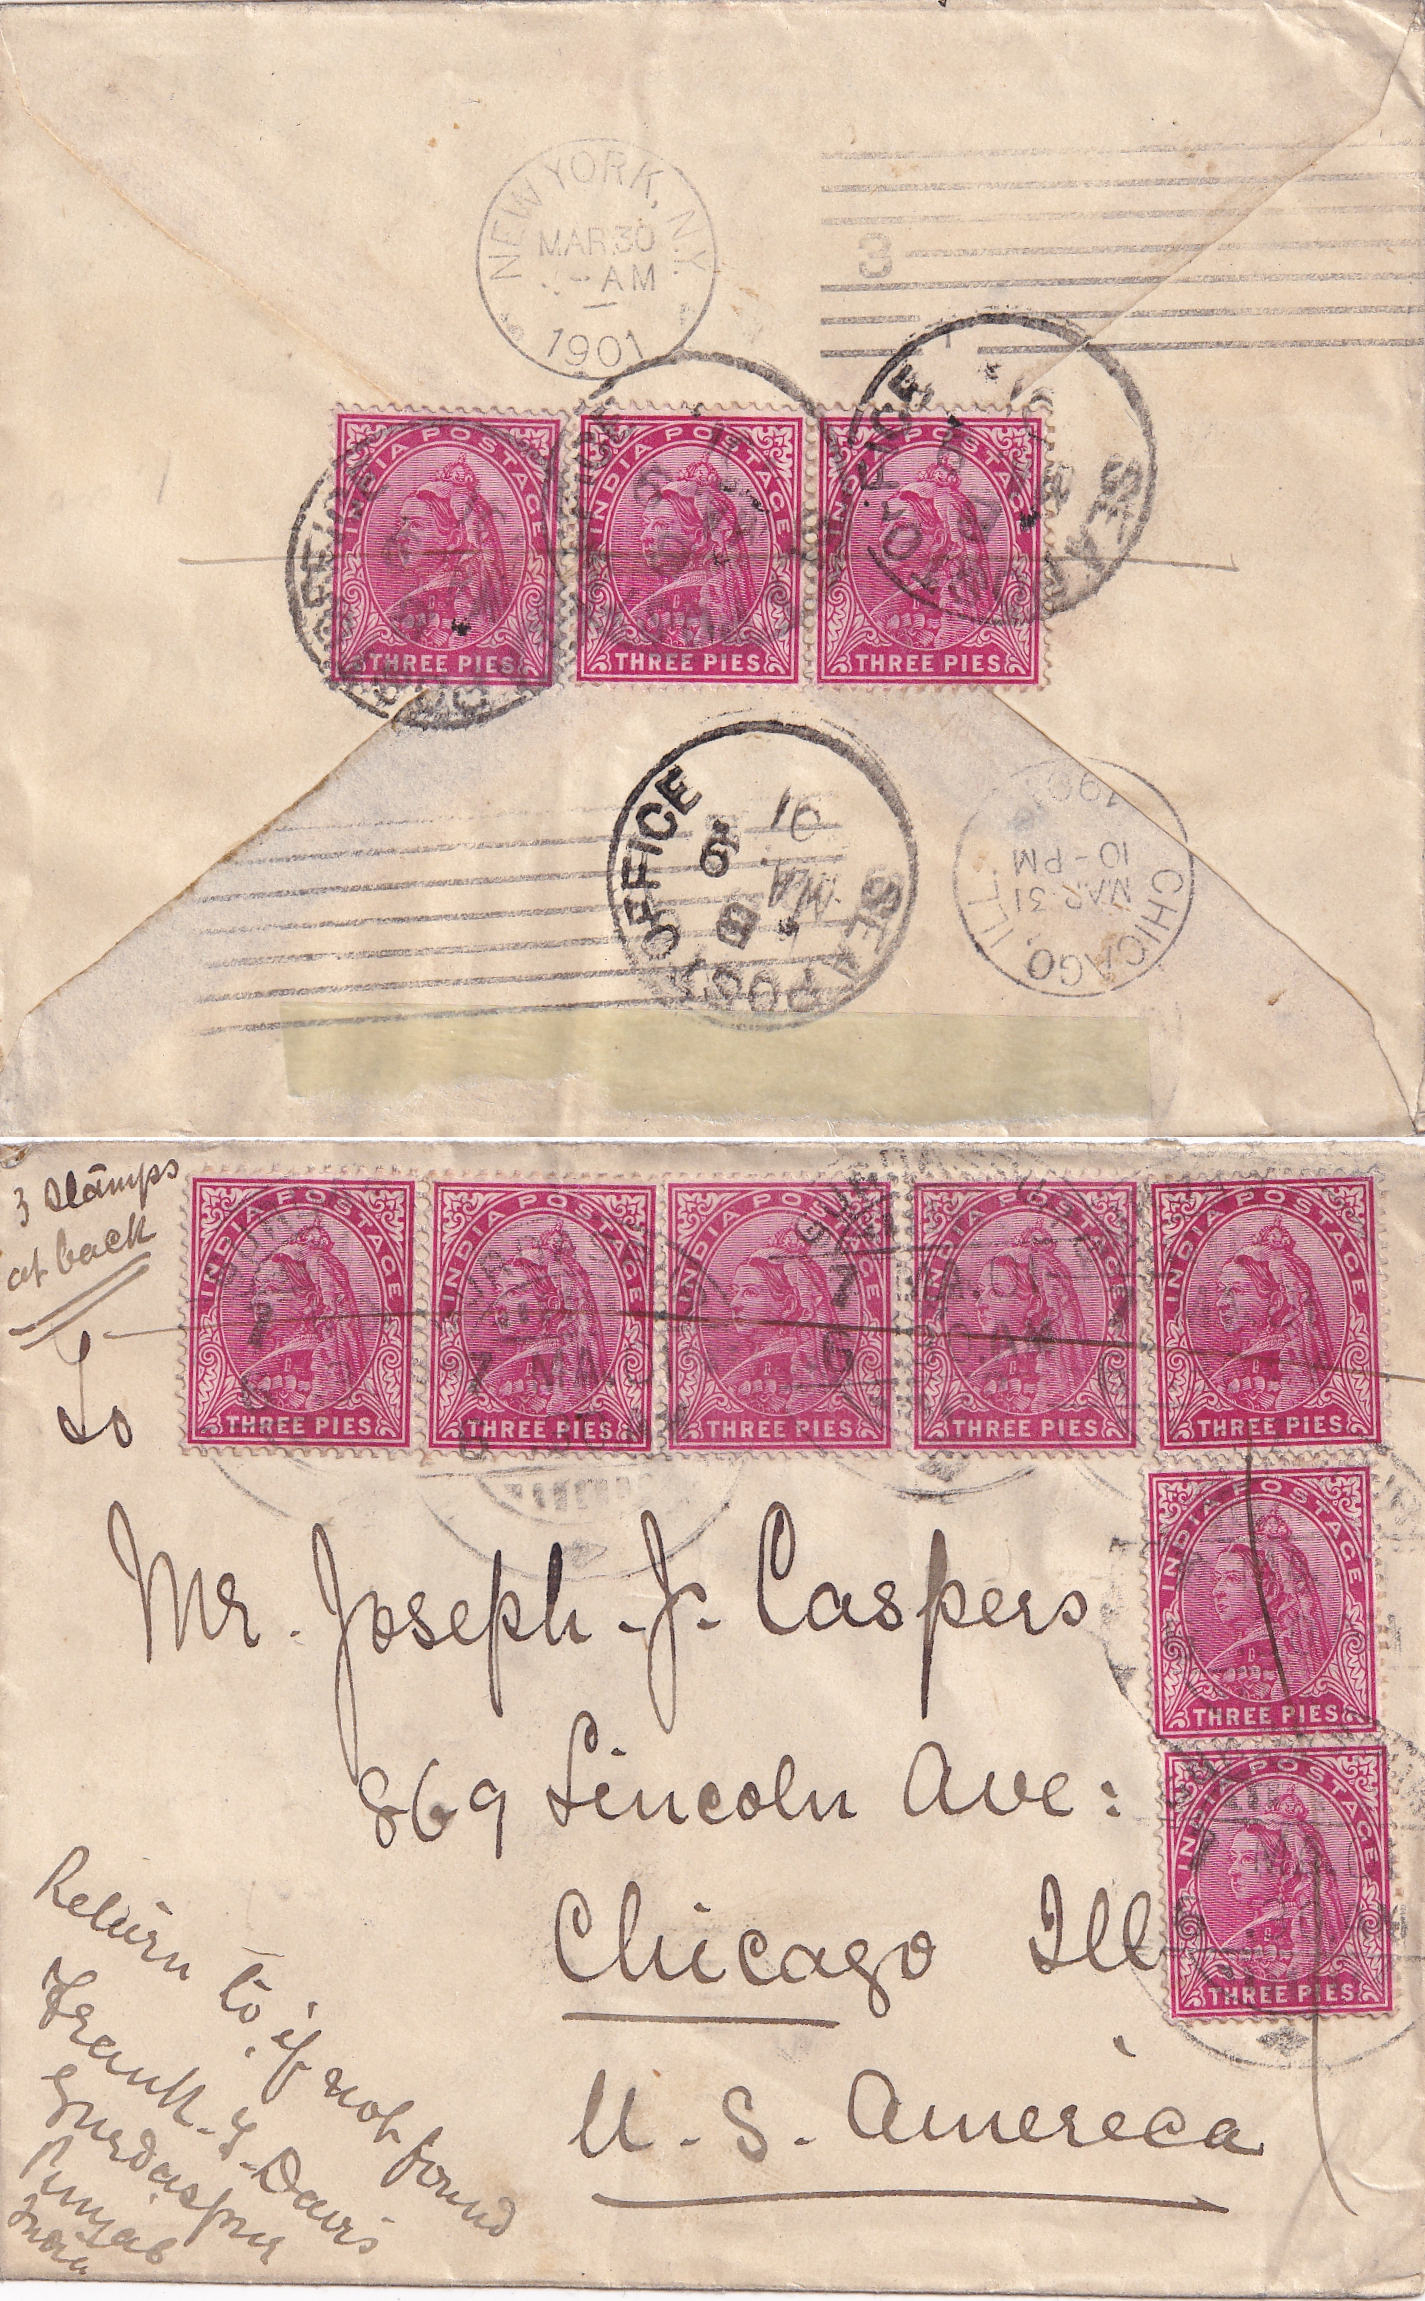 NEW YORK, N.Y.
MAR 30
AM
1901
3
INDIA POSTAGE
THREE PIES
INDIA POSTAGE
THREE PIES
INDIA POSTAGE
THREE PIES
SEA POST OFFICE
SEA POST OFFICE
B
CHICAGO, ILL.
MAR 31
10-PM
1901
3 stamps
at back
To
INDIA POSTAGE
THREE PIES
INDIA POSTAGE
THREE PIES
INDIA POSTAGE
THREE PIES
INDIA POSTAGE
THREE PIES
INDIA POSTAGE
THREE PIES
INDIA POSTAGE
THREE PIES
INDIA POSTAGE
THREE PIES
7 MA.01
Mr. Joseph. J. Caspers
869 Lincoln Ave:
Chicago Ill
U. S. America
Return to if not found
Frank. J. Davis
Gurdaspur
Punjab
India